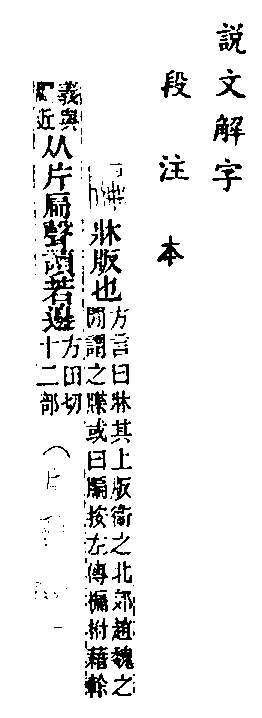 說文解字
段注本
牀版也方言曰牀其上版衛之北郊趙魏之閒謂之牒或曰牑按左傳楄柎藉榦
義與近从片扁聲讀若邊方田切十二部（